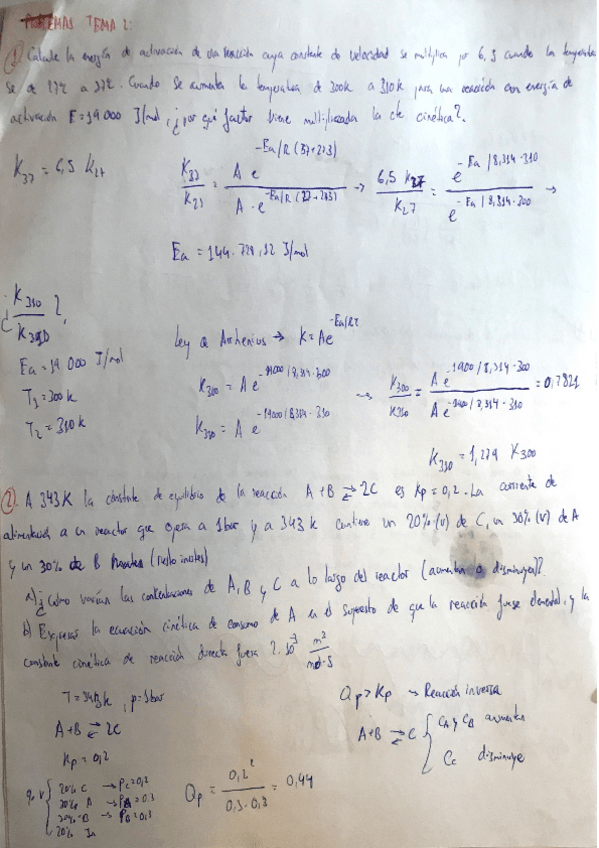 PROBLEMAS TEMA 2:
① Calcule la energía de activación de una reacción cuya constante de velocidad se multiplica por 6,5 cuando la temperatura
se de 27ºC a 37ºC. Cuando se aumenta la temperatura de 300K a 310K para una reacción con energía de
activación E=19000 J/mol, ¿por qué factor viene multiplicada la cte cinética?.
K37 = 6,5 K27
K37/K27 = A e^-Ea/R(37+273) / A·e^-Ea/R(27+273) → 6,5 K27/K27 = e^-Ea/8,314·310 / e^-Ea/8,314·300 →
Ea = 144.729,12 J/mol
¿ K310/K300 ?
Ea = 19 000 J/mol
T1 = 300K
T2 = 310K
Ley de Arrhenius → K=Ae^-Ea/RT
K300 = A e^-19000/8,314·300
K310 = A e^-19000/8,314·310
→ K300/K310 = A e^-1900/8,314·300 / A e^-1900/8,314·310 = 0,7821
K310 = 1,279 K300
② A 343K la constante de equilibrio de la reacción A+B ⇄ 2C es Kp = 0,2. La corriente de
alimentación a un reactor que opera a 1bar y a 343K contiene un 20% (v) de C, un 30% (v) de A
y un 30% de B (resto inertes)
a) ¿Cómo varían las concentraciones de A, B y C a lo largo del reactor (aumentan o disminuyen)?
b) Expresar la ecuación cinética de consumo de A en el supuesto de que la reacción fuese elemental, y la
constante cinética de reacción directa fuera 2·10^-3 m³/mol·s
T = 343K, p=1bar
A+B ⇄ 2C
Kp = 0,2
% v { 20% C → Pc=0,2
30% A → PA=0,3
20% B → PB=0,3
20% In
Qp = 0,2²/0,3·0,3 = 0,44
Qp > Kp → Reacción inversa
A+B ⇄ C { CA y CB aumentan
Cc disminuye